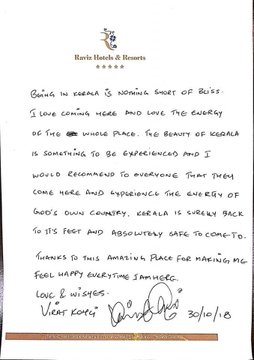 Raviz Hotels & Resorts
BEING IN KERALA IS NOTHING SHORT OF BLISS.
I LOVE COMING HERE AND LOVE THE ENERGY
OF THE WHOLE PLACE. THE BEAUTY OF KERALA
IS SOMETHING TO BE EXPERIENCED AND I
WOULD RECOMMEND TO EVERYONE THAT THEY
COME HERE AND EXPERIENCE THE ENERGY OF
GOD'S OWN COUNTRY. KERALA IS SURELY BACK
TO IT'S FEET AND ABSOLUTELY SAFE TO COME TO.
THANKS TO THIS AMAZING PLACE FOR MAKING ME
FEEL HAPPY EVERYTIME I AM HERE.
LOVE & WISHES.
VIRAT KOHLI 30/10/18